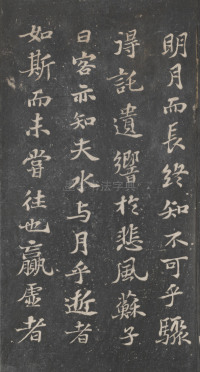 明月而長終知不可乎驟
得託遺響於悲風蘇子
曰客亦知夫水与月乎逝者
如斯而未嘗往也贏虛者